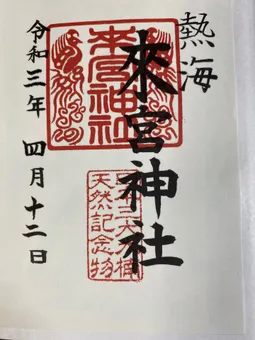 熱海
來宮神社
來宮神社
天然記念物
令和三年 四月十二日